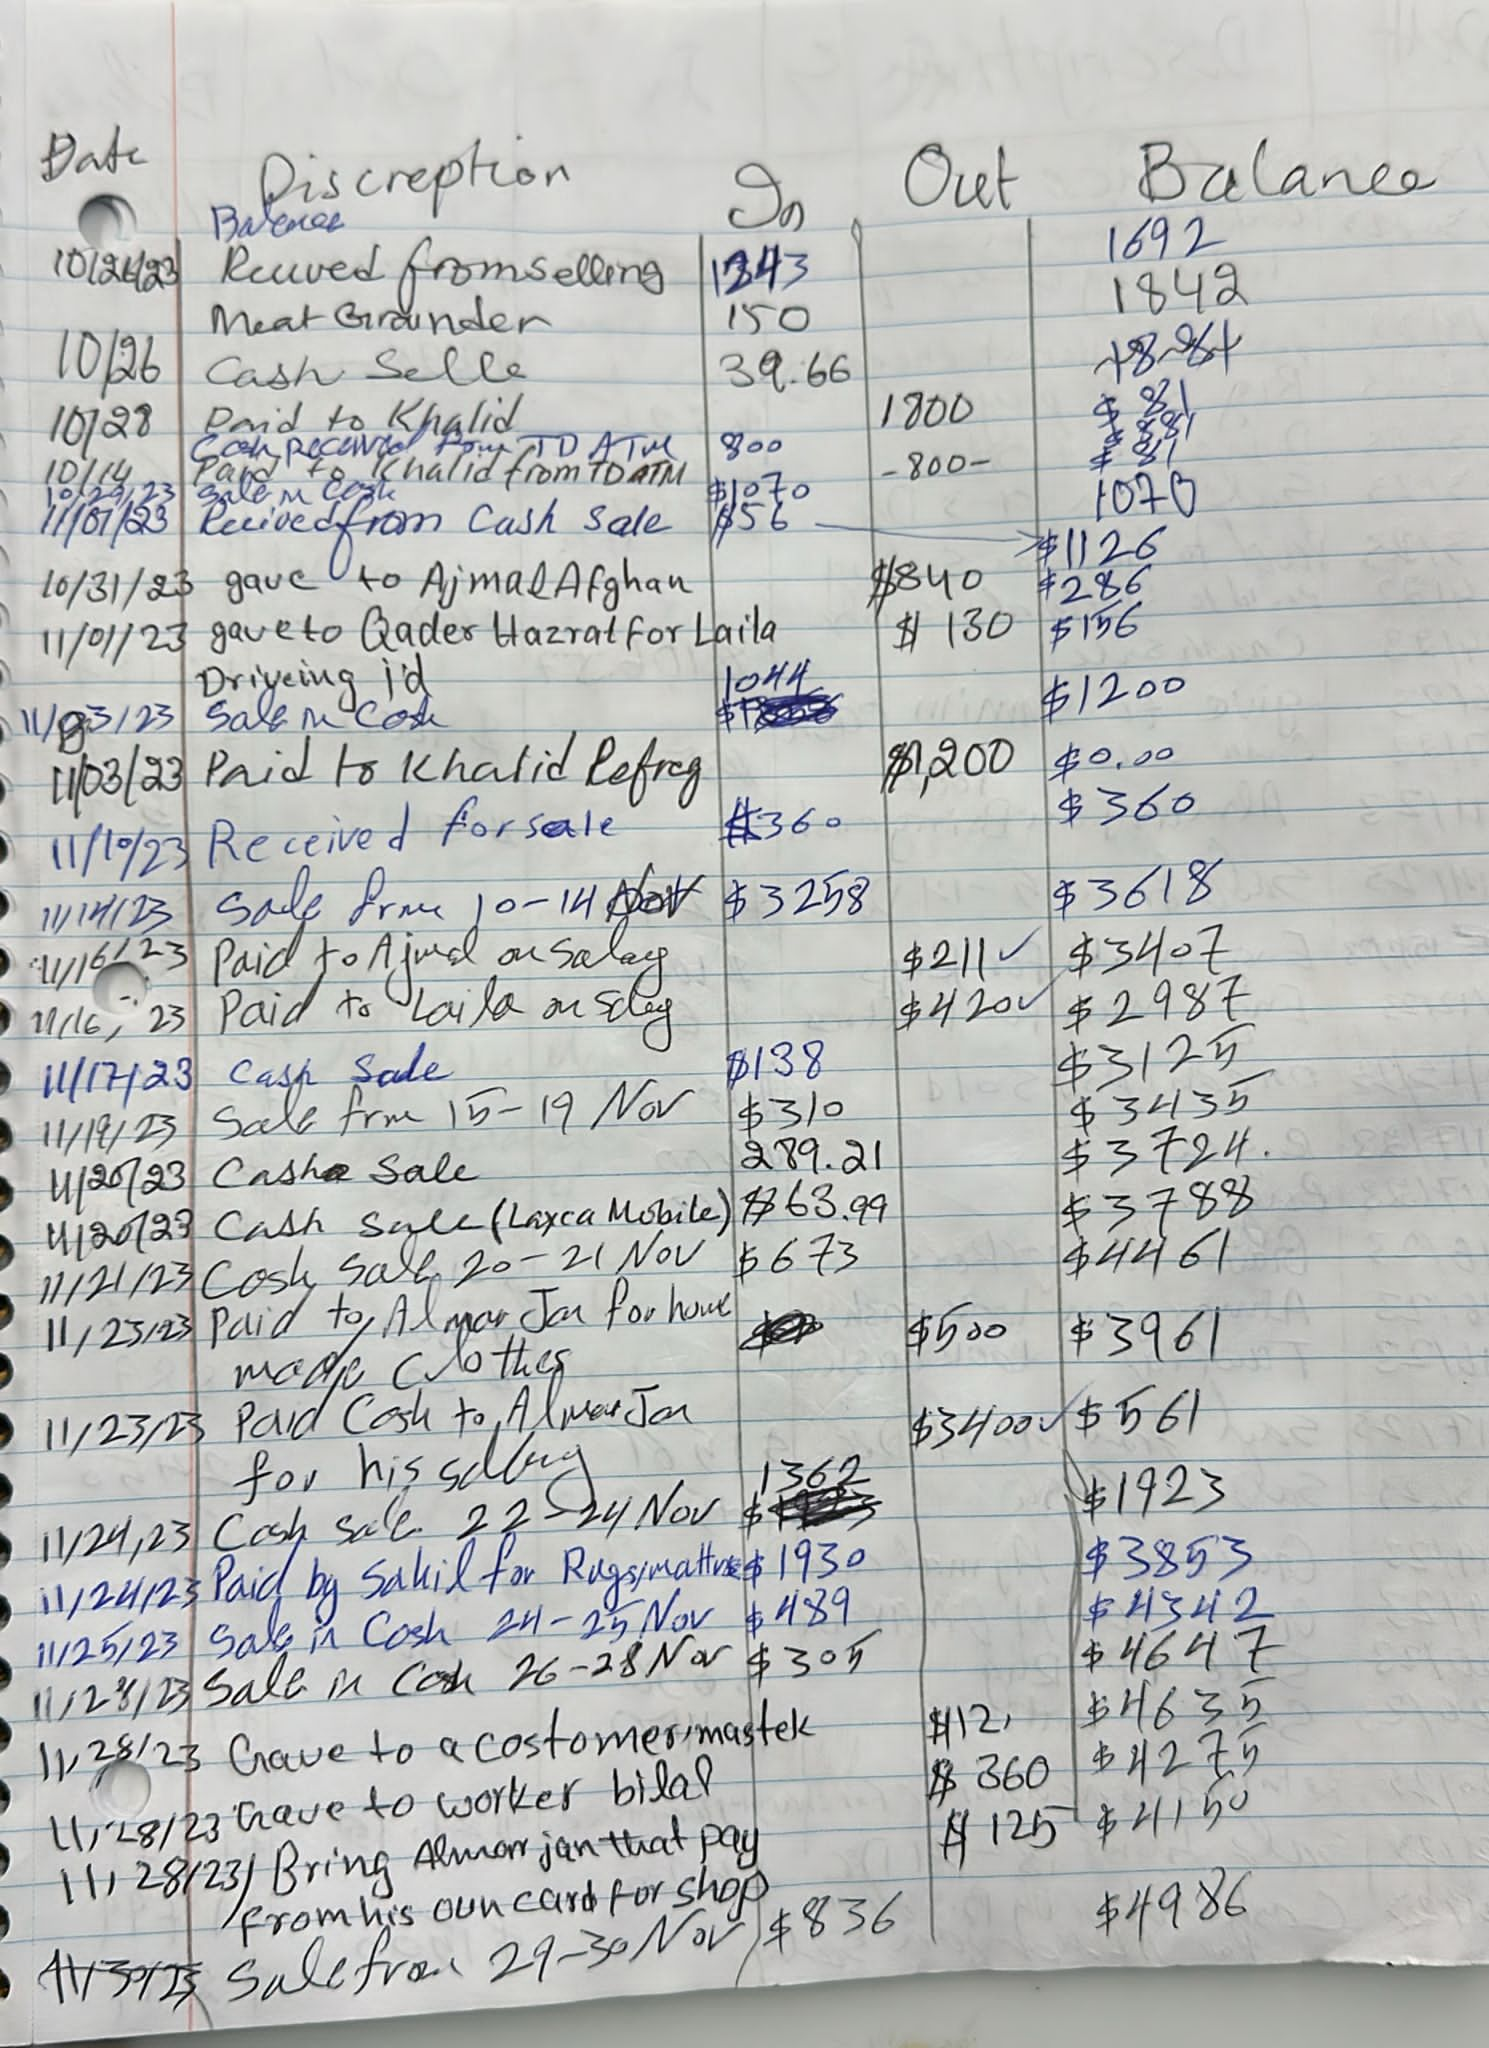 Date Discreption In Out Balance
Balance 1692
10/26/23 Recived from selling 1343 1842
Meat Grainder 150
10/26 Cash Selle 39.66
10/28 Paid to Khalid 1800 $81
Cash received from TD ATM 800 $881
10/14 Paid to Khalid from TD ATM -800- $81
10/29/23 Sale in Cash $1070 1070
11/01/23 Recived from Cash Sale $56 $1126
10/31/23 gave to Ajmal Afghan $840 $286
11/01/23 gave to Qader Hazrat for Laila $130 $156
Driveing i'd 1044
11/03/23 Sale in Cash $1200
11/03/23 Paid to Khalid Refreg $1,200 $0.00
11/10/23 Received for sale $360 $360
11/14/23 Sale from 10-14 Nov $3258 $3618
11/16/23 Paid to Ajmal on Salary $211✓ $3407
11/16/23 Paid to Laila on Salary $420✓ $2987
11/17/23 Cash Sale $138 $3125
11/19/23 Sale from 15-19 Nov $310 $3435
11/20/23 Cash Sale 289.21 $3724.
11/20/23 Cash Sale (Laxca Mobile) $63.99 $3788
11/21/23 Cash Sale 20-21 Nov $673 $4461
11/23/23 Paid to Almar Jan for home $500 $3961
made Clothes
11/23/23 Paid Cash to Almar Jan $3400✓ $561
for his salary 1362
11/24,23 Cash Sale 22-24 Nov $1923
11/24/23 Paid by Sahil for Rugs/mattres $1930 $3853
11/25/23 Sale in Cash 24-25 Nov $489 $4342
11/28/23 Sale in Cash 26-28 Nov $305 $4647
11/28/23 Gave to a costomer, mastek $12, $4635
11/28/23 Gave to worker bilal $360 $4275
11/28/23/ Bring Almar jan that pay $125 $4150
from his own card for shop
11/30/23 Sale from 29-30 Nov $836 $4986